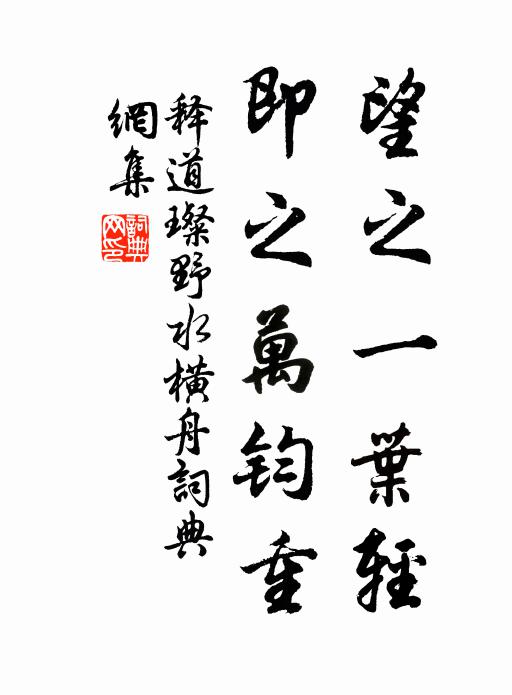 望之一葉輕
即之萬鈞重
释道璨野水横舟詞典
網集
詞典網印